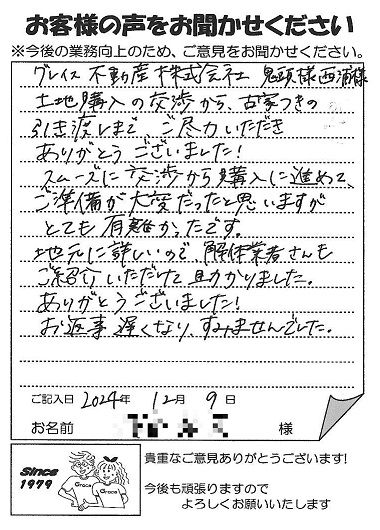 お客様の声をお聞かせください
※今後の業務向上のため、ご意見をお聞かせください。
グレイス不動産株式会社 鬼頭様西浦様
土地購入の交渉から、古家つきの
引き渡しまで、ご尽力いただき
ありがとうございました!
スムーズに交渉から購入に進めて、
ご準備が大変だったと思いますが
とても有難かったです。
地元に詳しいので、解体業者さんも
ご紹介いただけて助かりました。
ありがとうございました!
お返事遅くなり、すみませんでした。
ご記入日 2024年 12月 9日
お名前 様
Since
1979
Grace
Grace
貴重なご意見ありがとうございます!
今後も頑張りますので
よろしくお願いいたします